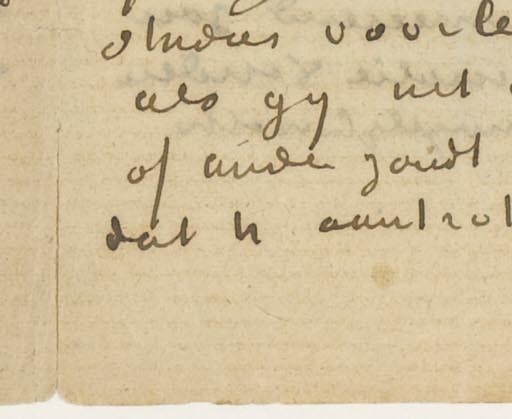 studies voorle
als gy uit
of ander zoudt
dat U aantrok